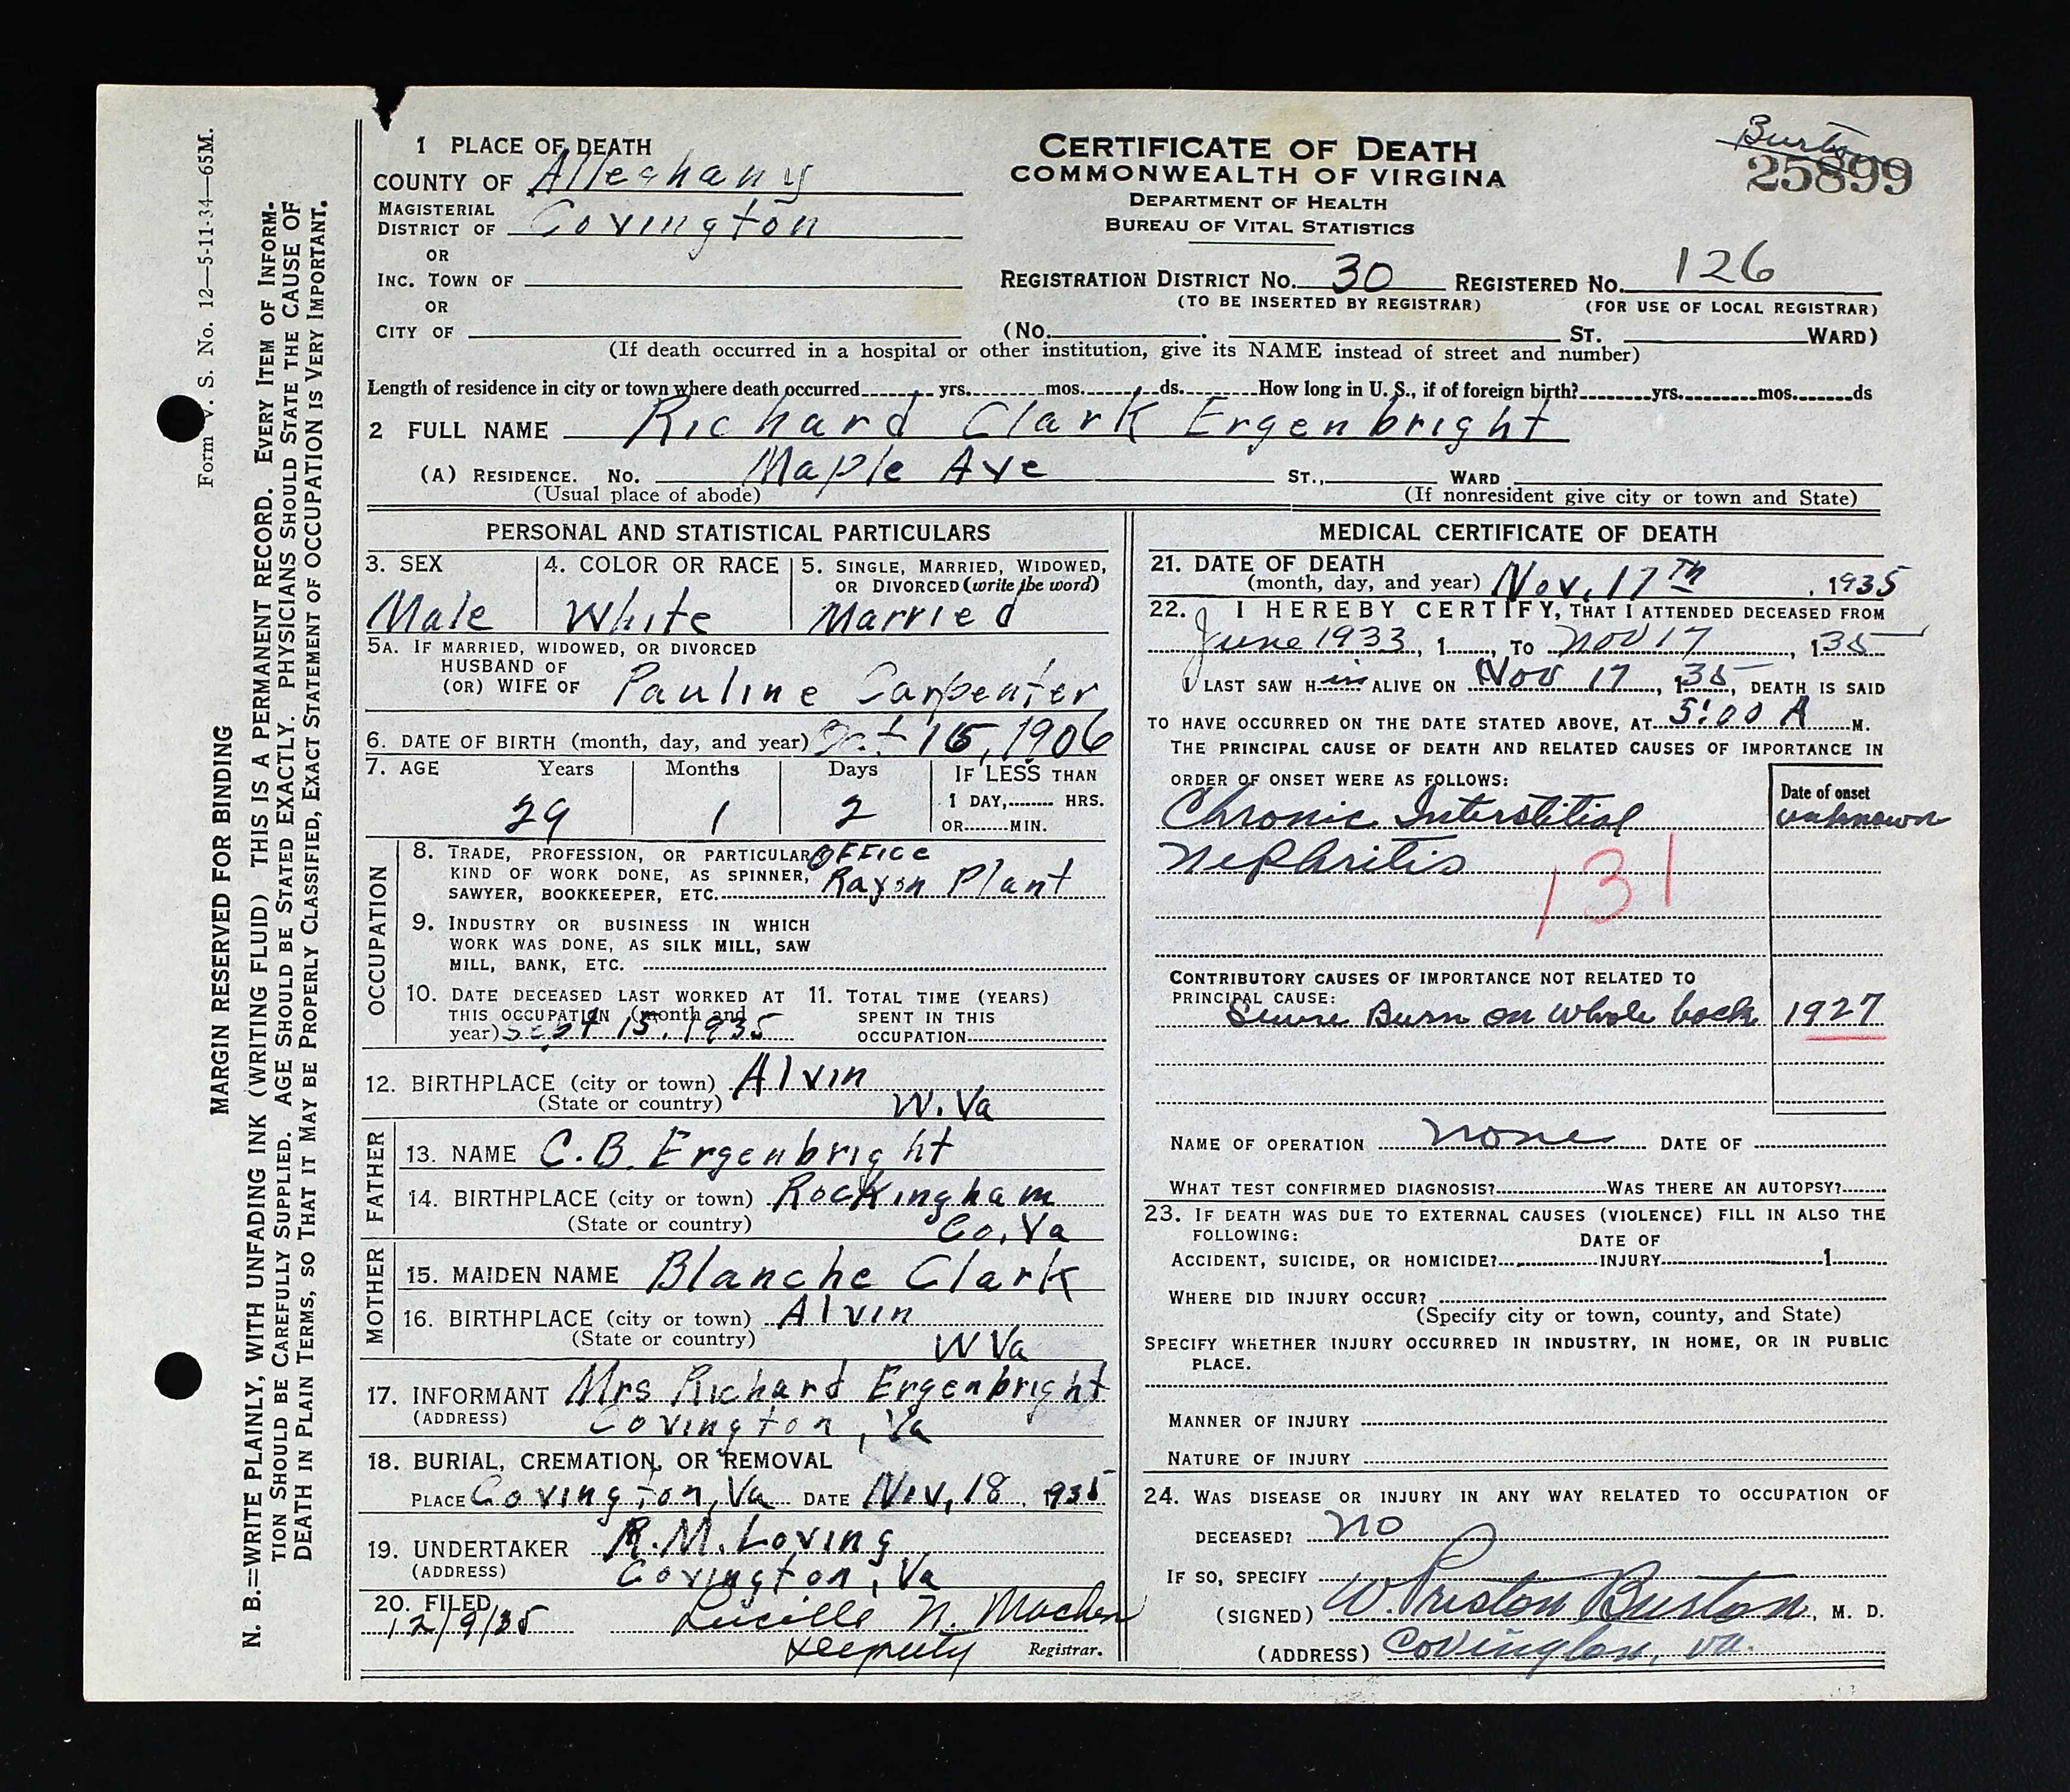 Form V. S. No. 12—5-11-34—65M.
MARGIN RESERVED FOR BINDING
N. B.=WRITE PLAINLY, WITH UNFADING INK (WRITING FLUID) THIS IS A PERMANENT RECORD. EVERY ITEM OF INFORM-
TION SHOULD BE CAREFULLY SUPPLIED. AGE SHOULD BE STATED EXACTLY. PHYSICIANS SHOULD STATE THE CAUSE OF
DEATH IN PLAIN TERMS, SO THAT IT MAY BE PROPERLY CLASSIFIED, EXACT STATEMENT OF OCCUPATION IS VERY IMPORTANT.
Burton
25899
CERTIFICATE OF DEATH
COMMONWEALTH OF VIRGINA
DEPARTMENT OF HEALTH
BUREAU OF VITAL STATISTICS
1 PLACE OF DEATH
COUNTY OF Alleghany
MAGISTERIAL
DISTRICT OF Covington
OR
INC. TOWN OF
OR
CITY OF
REGISTRATION DISTRICT NO. 30 REGISTERED NO. 126
(TO BE INSERTED BY REGISTRAR) (FOR USE OF LOCAL REGISTRAR)
(NO. ST. WARD)
(If death occurred in a hospital or other institution, give its NAME instead of street and number)
Length of residence in city or town where death occurred yrs. mos. ds. How long in U. S., if of foreign birth? yrs. mos. ds
2 FULL NAME Richard Clark Ergenbright
(A) RESIDENCE. NO. Maple Ave ST., WARD
(Usual place of abode) (If nonresident give city or town and State)
PERSONAL AND STATISTICAL PARTICULARS
3. SEX 4. COLOR OR RACE 5. SINGLE, MARRIED, WIDOWED,
OR DIVORCED (write the word)
Male White Married
5A. IF MARRIED, WIDOWED, OR DIVORCED
HUSBAND OF
(OR) WIFE OF Pauline Carpenter
6. DATE OF BIRTH (month, day, and year) Oct 15, 1906
7. AGE Years Months Days IF LESS THAN
1 DAY, HRS.
29 1 2
OR MIN.
OCCUPATION
8. TRADE, PROFESSION, OR PARTICULAR OFFICE
KIND OF WORK DONE, AS SPINNER, Rayon Plant
SAWYER, BOOKKEEPER, ETC.
9. INDUSTRY OR BUSINESS IN WHICH
WORK WAS DONE, AS SILK MILL, SAW
MILL, BANK, ETC.
10. DATE DECEASED LAST WORKED AT 11. TOTAL TIME (YEARS)
THIS OCCUPATION (month and SPENT IN THIS
year) Sept 15, 1935 OCCUPATION
12. BIRTHPLACE (city or town) Alvin
(State or country) W. Va
FATHER
13. NAME C. B. Ergenbright
14. BIRTHPLACE (city or town) Rockingham
(State or country) Co, Va
MOTHER
15. MAIDEN NAME Blanche Clark
16. BIRTHPLACE (city or town) Alvin
(State or country) W Va
17. INFORMANT Mrs Richard Ergenbright
(ADDRESS) Covington, Va
18. BURIAL, CREMATION, OR REMOVAL
PLACE Covington, Va DATE Nov, 18, 1935
19. UNDERTAKER R. M. Loving
(ADDRESS) Covington, Va
20. FILED
12/9/35 Lucille N.
Deeputy Registrar.
MEDICAL CERTIFICATE OF DEATH
21. DATE OF DEATH
(month, day, and year) Nov, 17TH, 1935
22. I HEREBY CERTIFY, THAT I ATTENDED DECEASED FROM
June 1933, 1 TO Nov 17, 135
I LAST SAW HIM ALIVE ON Nov 17, 135, DEATH IS SAID
TO HAVE OCCURRED ON THE DATE STATED ABOVE, AT 5:00 A M.
THE PRINCIPAL CAUSE OF DEATH AND RELATED CAUSES OF IMPORTANCE IN
ORDER OF ONSET WERE AS FOLLOWS: Date of onset
Chronic Interstitial unknown
Nephritis
131
CONTRIBUTORY CAUSES OF IMPORTANCE NOT RELATED TO
PRINCIPAL CAUSE:
Severe Burn on whole back 1927
NAME OF OPERATION none DATE OF
WHAT TEST CONFIRMED DIAGNOSIS? WAS THERE AN AUTOPSY?
23. IF DEATH WAS DUE TO EXTERNAL CAUSES (VIOLENCE) FILL IN ALSO THE
FOLLOWING: DATE OF
ACCIDENT, SUICIDE, OR HOMICIDE? INJURY 1
WHERE DID INJURY OCCUR?
(Specify city or town, county, and State)
SPECIFY WHETHER INJURY OCCURRED IN INDUSTRY, IN HOME, OR IN PUBLIC
PLACE.
MANNER OF INJURY
NATURE OF INJURY
24. WAS DISEASE OR INJURY IN ANY WAY RELATED TO OCCUPATION OF
DECEASED? no
IF SO, SPECIFY
(SIGNED) W. Preston Burton, M. D.
(ADDRESS) Covington, va.